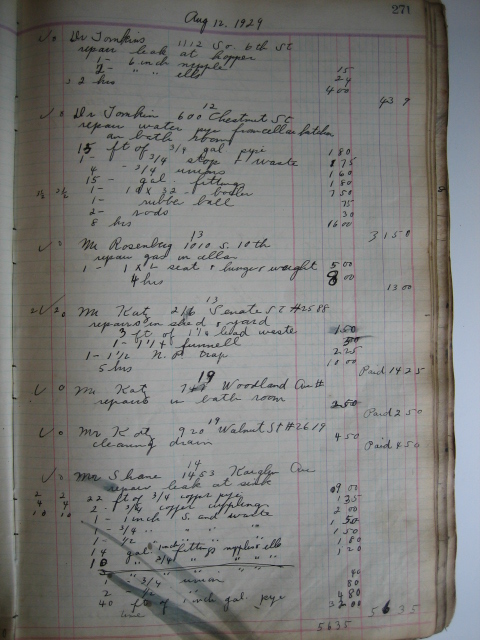 271
Aug 12, 1929
Dr Tomkins 1112 So. 6th St
repair leak at hopper
1- 6 inch nipple 15
2- " " ells 24
2 hrs 4 00
4 39
12
Dr Tomkin 600 Chestnut St
repair water pipe from cellar kitchen
an bath room
15 ft of 3/4 gal pipe 1 80
1- 3/4 stop & waste 1 75
4 - 3/4 unions 1 60
15 - gal. fittings 1 80
1- 12 x 32 - boiler 7 50
1- rubber ball 75
2- rods 30
8 hrs 16 00
31 50
13
Mr Rosenberg 1010 S. 10th
repair gas in cellar
1 seat & hunger weight 5 00
4 hrs 8 00
13 00
13
Mr Kat 216 Senate St #2588
repairs in shed & yard
3 ft of 1 1/2 lead waste 1 50
1- 1 1/4 funnell 50
1- 1 1/2 N.P. trap 2 25
5 hrs 10 00
Paid 14 25
19
Mr Kat Woodland Av #
repairs in bath room 2 50
Paid 2 50
19
Mr Kat 920 Walnut St #2619
cleaning drain 4 50
Paid 4 50
14
Mr Shane 1453 Kaighn Ave
repair leak at sink
22 ft of 3/4 copper pipe 9 00
2- 3/4 copper cupplings 1 35
1- 1 inch S. and waste 2 00
1- 3/4 " " " " 1 50
1- 1/2 " " " " 1 50
14 gal 1 inch fittings nipples & ells 1 80
10 " 3/4 " " " 1 20
40
1 3/4 union 80
2 - 1/2 " 4 80
40 ft of 1 inch gal. pipe 32 00
time
56 35
5635